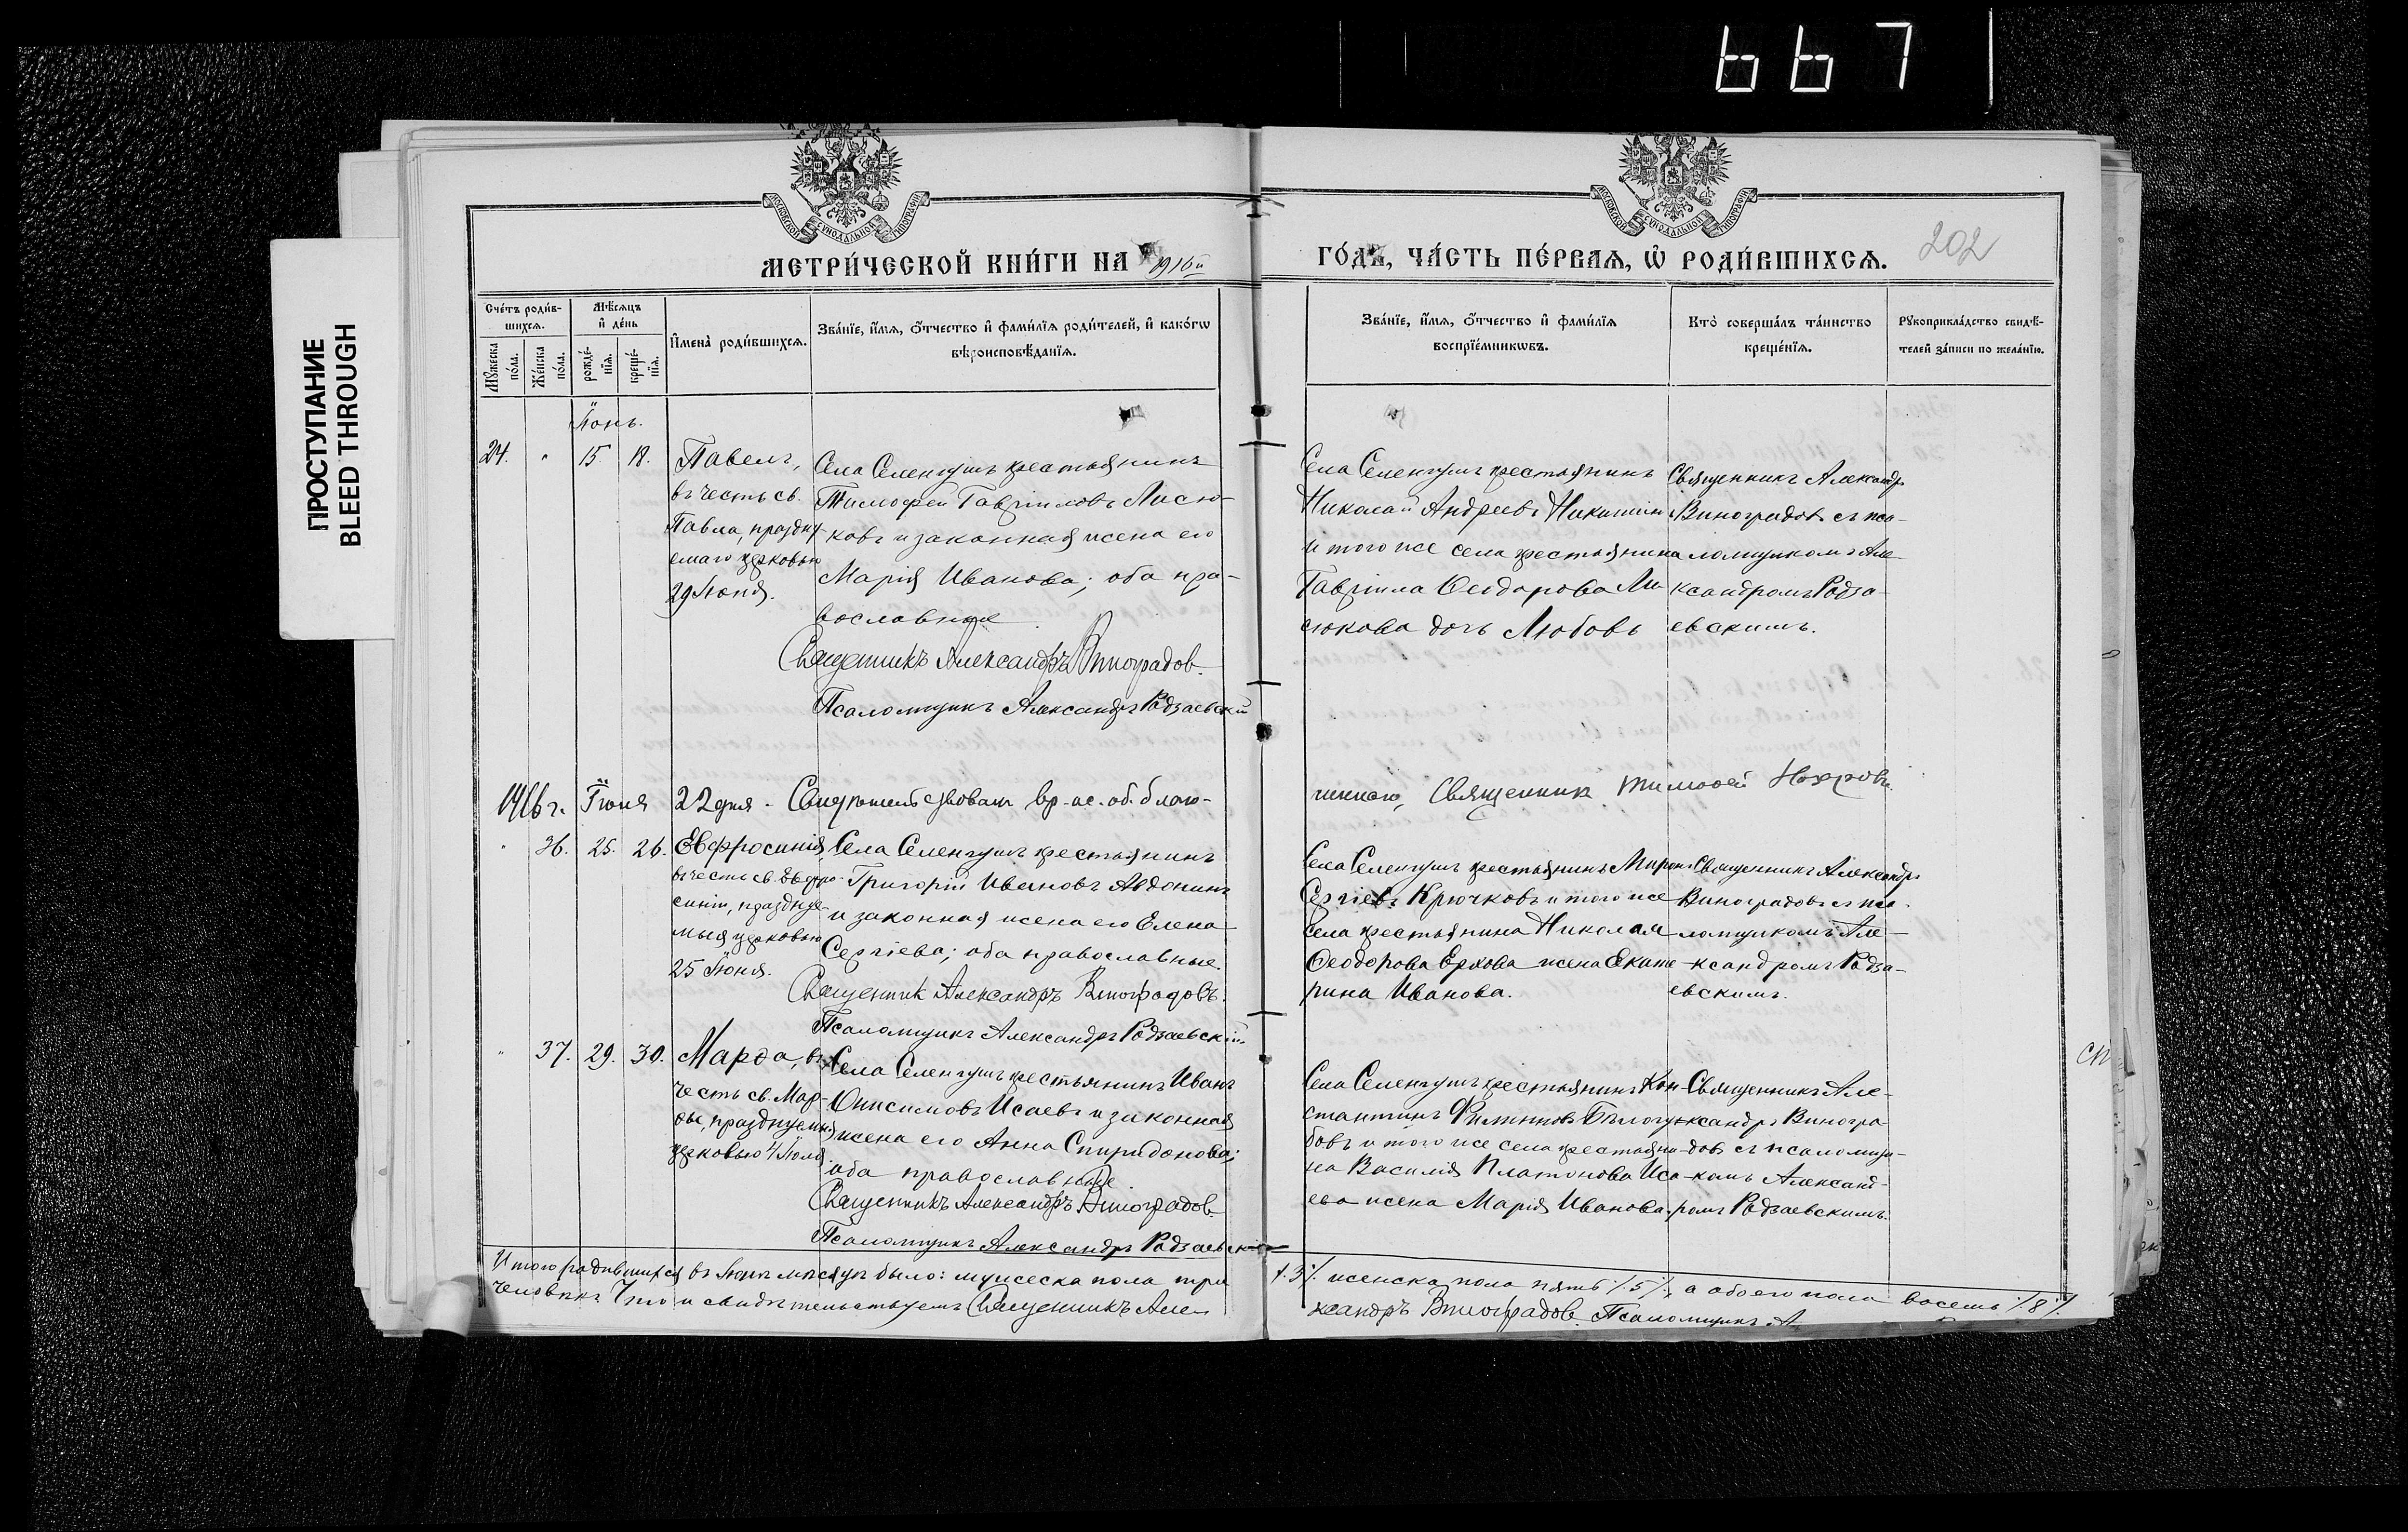 667
ПРОСТУПАНИЕ
BLEED THROUGH
МОСКОВСКОЙ СУНОДАЛЬНОЙ ТИПОГРАФІИ
МОСКОВСКОЙ СУНОДАЛЬНОЙ ТИПОГРАФІИ
МЕТРИ́ЧЕСКОЙ КНИ́ГИ НА 1916й
ГО́ДЪ, ЧА́СТЬ ПЕ́РВАѦ, Ѡ҆ РОДИ́ВШИХСѦ.
202
Сче́тъ роди́в-
шихсѧ.
Мѣ́сѧцъ
и҆ де́нь
Мꙋ́жеска
по́ла.
Же́нска
по́ла.
рожде́-
нїѧ.
креще́-
нїѧ.
И҆мена̀ роди́вшихсѧ.
Зва́нїе, и҆́мѧ, ѻ҆́тчество и҆ фами́лїѧ роди́телей, и҆ како́гѡ
вѣроисповѣ́данїѧ.
Зва́нїе, и҆́мѧ, ѻ҆́тчество и҆ фами́лїѧ
воспрїе́мникѡвъ.
Кто̀ соверша́лъ та́инство
креще́нїѧ.
Рꙋкоприкла́дство свидѣ́-
телей за́писи по жела́нїю.
Іюнь.
24. " 15 18.
Павелъ,
въ честь св.
Павла, праздну-
емаго церковью
29 Іюня.
Села Селенгушъ крестьянинъ
Тимофей Гавріиловъ Лисю-
ковъ и законная жена его
Марія Иванова; оба пра-
вославные.
Священникъ Александръ Виноградов.
Псаломщикъ Александръ Радзаевскій
Села Селенгушъ крестьянинъ
Николай Андреевъ Никитинъ
и того же села крестьянина
Гавріила Ѳеодорова Ли-
сюкова дочь Любовь
Священникъ Александръ
Виноградовъ съ пса-
ломщикомъ Але-
ксандромъ Радза-
евскимъ.
1916 г. Іюня 22 дня. Свидѣтельствовалъ вр. ис. об. благо-
чиннаго, Священник Тимоѳей
" 36. 25. 26.
Евфросинія,
въ честь св. Евфро-
синіи, празднуе-
мыя церковью
25 Іюня.
Села Селенгушъ крестьянинъ
Григорій Ивановъ Авдонинъ
и законная жена его Елена
Сергіева; оба православные.
Священник Александръ Виноградовъ.
Псаломщикъ Александръ Радзаевскій
Села Селенгушъ крестьянинъ Миронъ
Сергіевъ Крючковъ и того же
села крестьянина Николая
Ѳеодорова Ерхова жена Екате-
рина Иванова.
Священникъ Александръ
Виноградовъ съ пса-
ломщикомъ Але-
ксандромъ Радза-
евскимъ.
" 37. 29. 30.
Марѳа, въ
честь св. Мар-
ѳы, празднуемыя
церковью 4 Іюля
Села Селенгушъ крестьянинъ Иванъ
Онисимовъ Исаевъ и законная
жена его Анна Спиридонова;
оба православные.
Священникъ Александръ Виноградов.
Псаломщикъ Александръ Радзаевскій
Села Селенгушъ крестьянинъ Кон-
стантинъ Филиповъ Бѣлогу-
бовъ и того же села крестьяни-
на Василія Платонова Иса-
ева жена Марія Иванова.
Священникъ Але-
ксандръ Виногра-
довъ съ псаломщи-
комъ Александ-
ромъ Радзаевскимъ.
Итого родившихся въ Іюнѣ мѣсяцѣ было: мужеска пола три
·/.3·/. женска пола пять ·/.5·/., а обоего пола восемь ·/.8·/.
человѣкъ. Что и свидѣтельствуемъ Священникъ Але-
ксандръ Виноградов. Псаломщикъ А